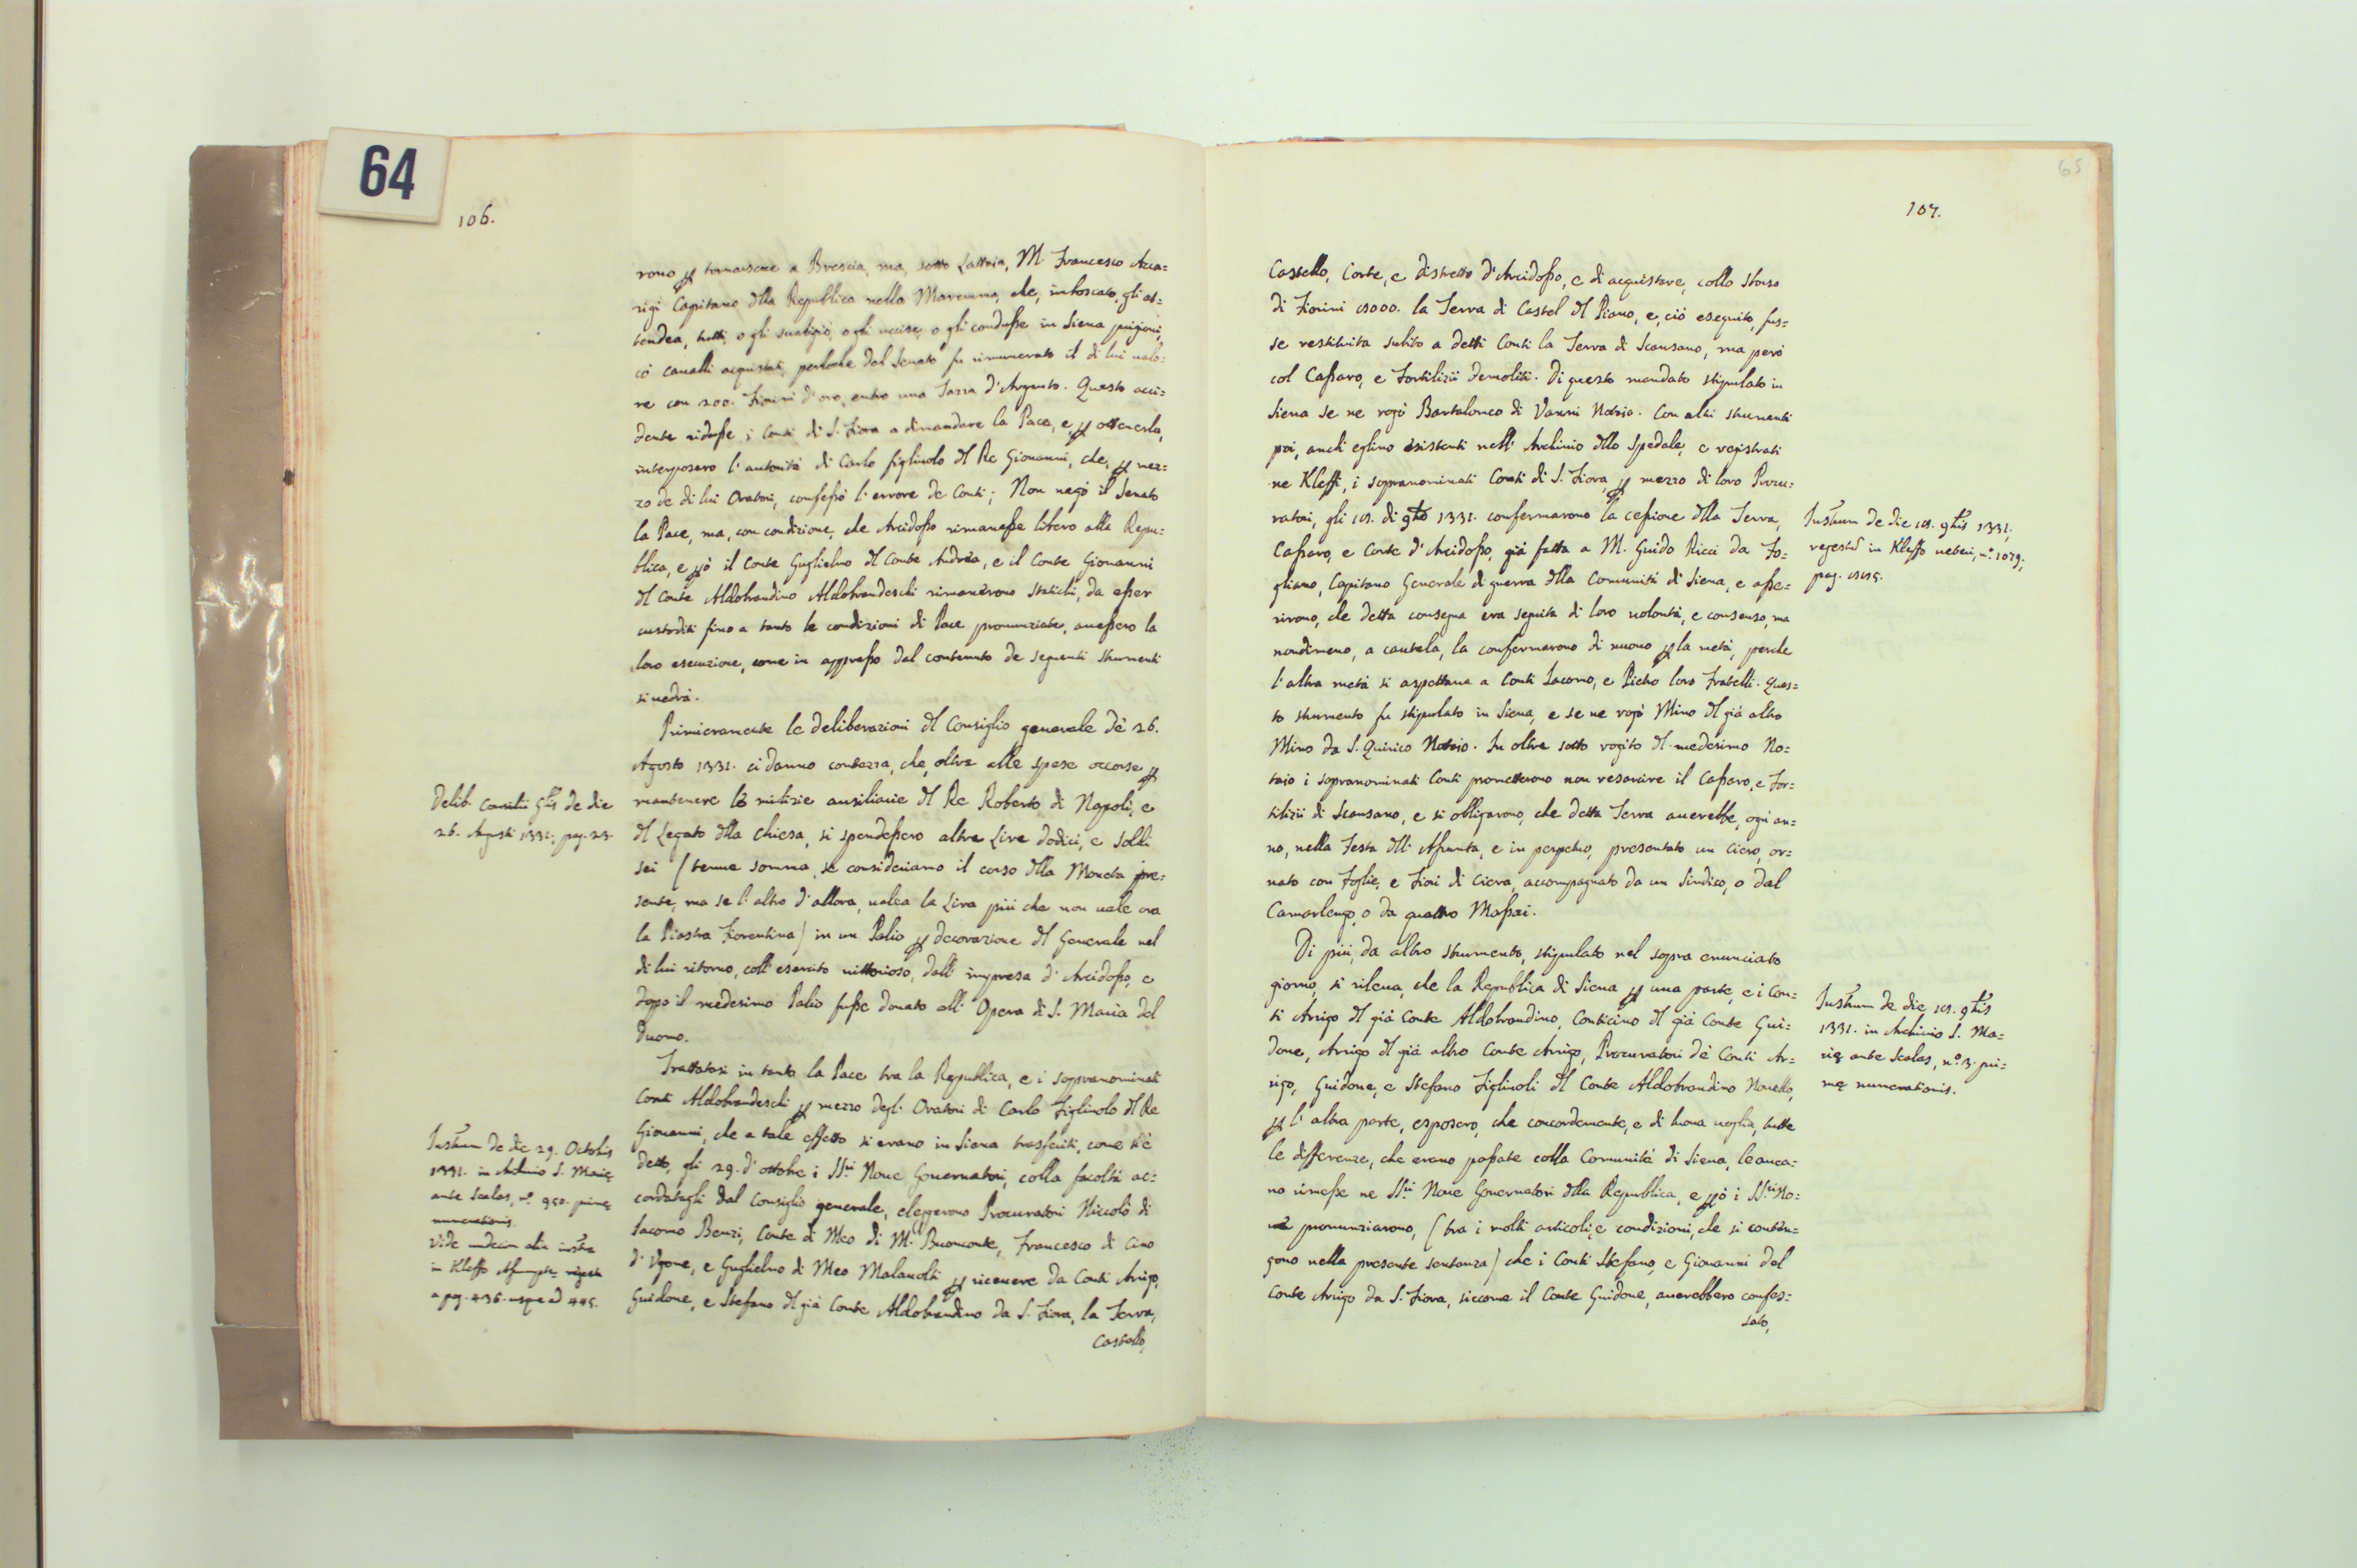 64
106.
rono ꝑ tornarsene a Brescia, ma, sotto Lattaia, M. Francesco Acca=
rigi Capitano dlla Republica nella Maremma, che, imboscato, gli at=
tendea, tutti, o gli svaligiò, o gli uccise, o gli condusse in Siena prigioni,
có caualli acquistati, perloche dal Senato fu rimunerato il di lui valo=
re con 200. Fiorini d'oro, entro una Tazza d'Argento. Questo acci=
dente ridusse i Conti di S. Fiora a dimandare la Pace, e, ꝑ ottenerla,
interposero l'autorità di Carlo figliuolo dl Re Giovanni, che, ꝑ mez=
zo de di lui Oratori, confessò l'errore de Conti; Non negò il Senato
la Pace, ma, con condizione, che Arcidosso rimanesse libero alla Repu=
blica, e ꝑò il Conte Guglielmo dl Conte Andrea, e il Conte Giouanni
dl Conte Aldobrandino Aldobrandeschi rimanérono Statichi, da esser
custoditi fino a tanto le condizioni di Pace pronunziate, auessero la
loro esecuzione, come in appresso dal contenuto de seguenti strumenti
si uedrà.
Primieramente le deliberazioni dl Consiglio generale dè 26.
Agosto 1331. ci danno contezza, che, oltre alle spese occorse ꝑ
mantenere le milizie ausiliarie dl Re Roberto di Napoli, e
dl Legato dlla Chiesa, si spendessero altre Lire dodici, e soldi
sei (tenue somma, se consideriamo il corso dlla Moneta pre=
sente, ma se l'altro d'allora, ualea la Lira più che non uale ora
la Piastra Fiorentina) in un Palio ꝑ decorazione dl Generale nel
di lui ritorno, coll'esercito uittorioso, dall'impresa d'Arcidosso, e
dopo il medesimo Palio fusse donato all'Opera di S. Maria del
Duomo.
Trattatasi in tanto la Pace tra la Republica, e i sopranominati
Conti Aldobrandeschi ꝑ mezzo degl'Oratori di Carlo Figliuolo dl Re
Giouanni, che a tale effetto si erano in Siena trasferiti, come s'è
detto, gli 29. d'ottobre i SSri Noue Gouernatori, colla facoltà ac=
cordatagli dal Consiglio generale, elessero Procuratori Niccolò di
Iacomo Benzi, Conte di Meo di M. Buonconte, Francesco di Cino
d'Ugone, e Guglielmo di Meo Malauolti ꝑ riceuere da Conti Arrigo,
Guidone, e Stefano dl già Conte Aldobrandino da S. Fiora, la Terra,
Castello,
Delib. Consilii Glis de die
26. Agusti 1331. pag. 23.
Instrum de die 29. Octobris
1331. in Archivio S. Marię
ante Scalas, n.o 950. primę
numerationis.
Vide undecim alia instra
in Kleffo Assumptę
a pag. 436. usque ad 445.
65
107.
Castello, Corte, e distretto d'Arcidosso, e di acquistare, collo sborso
di Fiorini 15000. la Terra di Castel dl Piano, e, ciò eseguito, fus=
se restituita subito a detti Conti la Terra di Scansano, ma però
col Cassaro, e Fortilizii demoliti. Di questo mandato stipulato in
Siena se ne rogò Bartalomeo di Vanni Notaio. Con altri strumenti
poi, anch'eglino esistenti nell'Archiuio dllo Spedale, e registrati
ne Kleffi, i sopranominati Conti di S. Fiora, ꝑ mezzo di loro Procu=
ratori, gli 15. di 9bre 1331. confermarono la cessione dlla Terra,
Cassaro, e Corte d'Arcidosso, già fatta a M. Guido Ricci da Fo=
gliano, Capitano Generale di guerra dlla Comunità di Siena, e asse=
rirono, che detta consegna era seguita di loro uolontà, e consenso, ma
nondimeno, a cautela, la confermarono di nuouo ꝑ la metà, perche
l'altra metà si aspettaua a Conti Iacomo, e Pietro loro Fratelli. Ques=
to strumento fu stipulato in Siena, e se ne rogò Mino dl già altro
Mino da S. Quirico Notaio. In oltre sotto rogito dl medesimo No=
taio i sopranominati Conti promettérono non resarcire il Cassaro, e For=
tilizii di Scansano, e si obligarono, che detta Terra auerebbe, ogni an=
no, nella Festa dll'Assunta, e in perpetuo, presentato un Ciero, or=
nato con Foglie, e Fiori di Ciera, accompagnato da un Sindico, o dal
Camarlengo, o da quattro Massai.
Di più, da altro strumento, stipulato nel sopra enunciato
giorno, si rileua, che la Republica di Siena ꝑ una parte, e i Con=
ti Arrigo dl già Conte Aldobrandino, Conticino dl già Conte Gui=
done, Arrigo dl già altro Conte Arrigo, Procuratori dè Conti Ar=
rigo, Guidone, e Stefano Figliuoli dl Conte Aldobrandino Nouello,
ꝑ l'altra parte, esposero, che concordemente, e di buona uoglia, tutte
le differenze, che erano passate colla Comunità di Siena, le auea=
no rimesse ne SSri Noue Gouernatori dlla Republica, e ꝑò i SSri No=
ue pronunziarono, (tra i molti articoli, e condizioni, che si conten=
gono nella presente sentenza) che i Conti Stefano, e Giouanni del
Conte Arrigo da S. Fiora, siccome il Conte Guidone, auerebbero confes=
sato,
Instrum de die 15. 9bris 1331.
regestrd in Kleffo ueteri, n.o 1079.
pag. 1515.
Instrum de die 15. 9bris
1331. in Archivio S. Ma=
rię ante Scalas, n.o 3. pri=
mę numerationis.